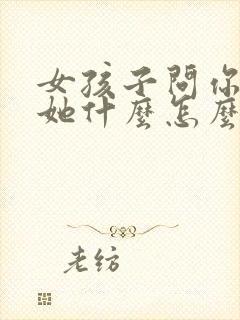 女孩子問你
她什麼怎麼
老紡